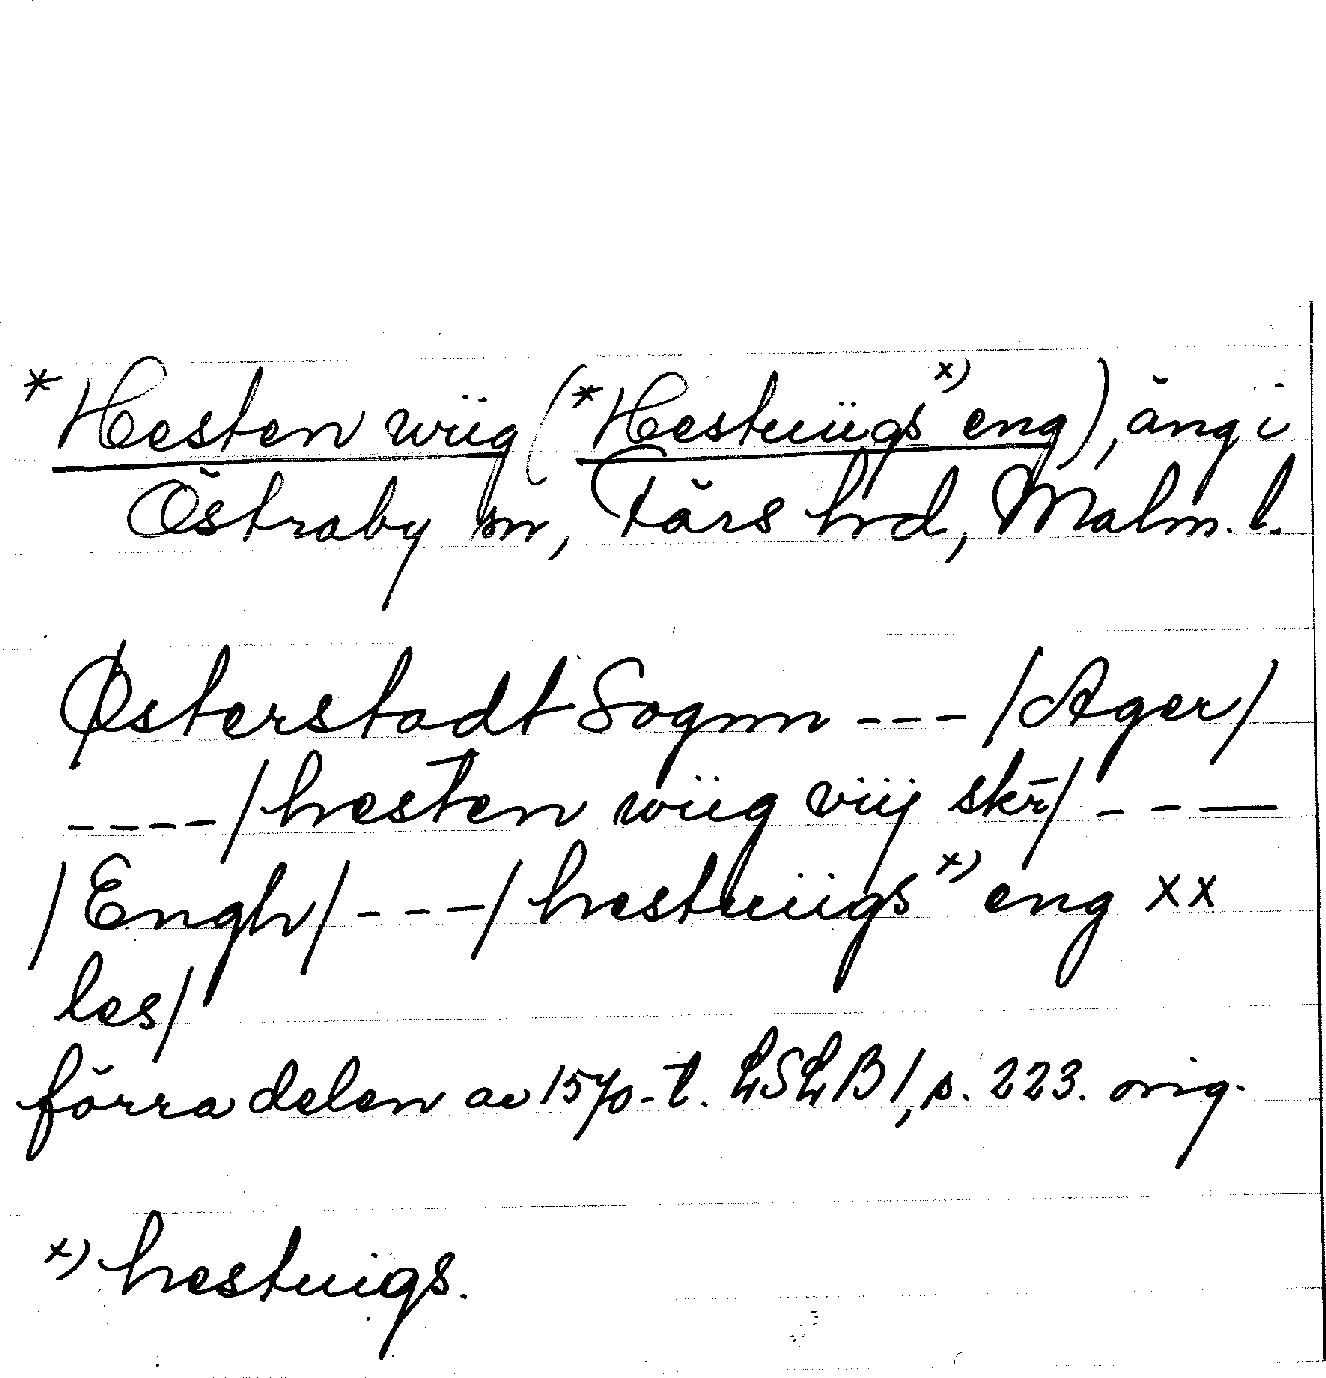 *Hesten wiig (*Hestuiigs x) eng), äng i
Östraby sn, Färs hd, Malm. l.
Østerstadt Sognn --- /Ager/
----/hesten wiig viij skr̄/ ---
/Engh/ ---/hestuiigs x) eng xx
les/
förra delen av 1570-t. LSLB 1, p. 223. orig.
x) hestuigs.